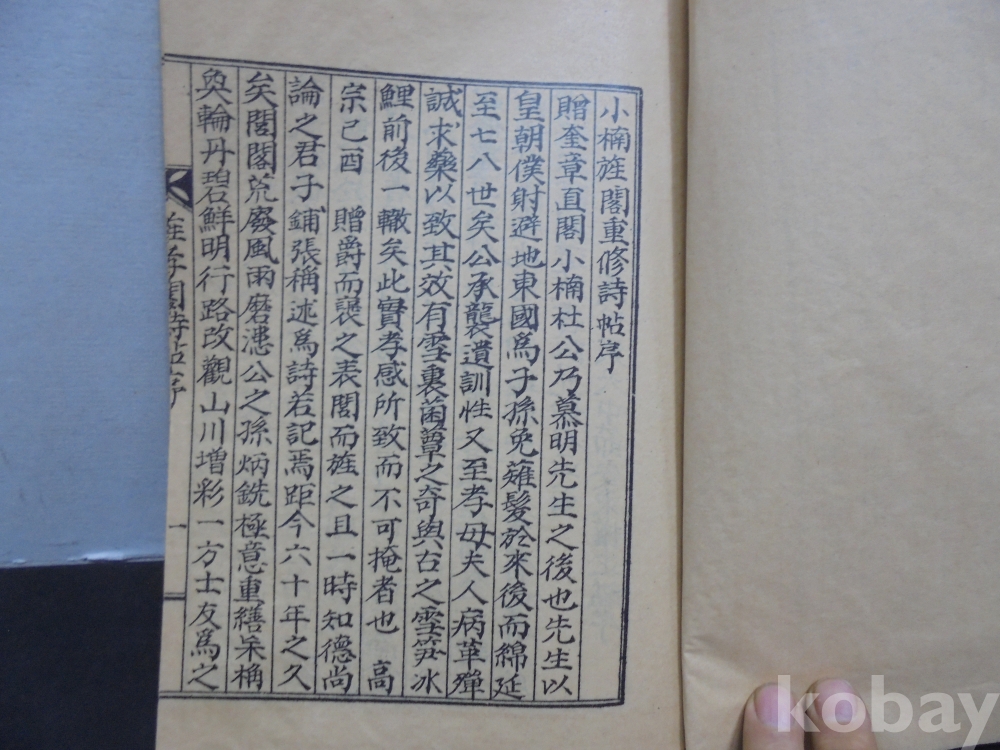 小楠旌閣重修詩帖序
贈奎章直閣小楠杜公乃慕明先生之後也先生以
皇朝僕射避地東國爲子孫免薙髮於來後而綿延
至七八世矣公承襲遺訓性又至孝母夫人病革殫
誠求藥以致其效有雪裏菌蕈之奇與古之雪笋冰
鯉前後一轍矣此實孝感所致而不可掩者也 高
宗己酉 贈爵而褒之表閭而旌之且一時知德尚
論之君子鋪張稱述爲詩若記焉距今六十年之久
矣閭閣荒廢風雨磨漶公之孫炳銑極意重繕杗桷
奐輪丹碧鮮明行路改觀山川增彩一方士友爲之
旌孝閣詩帖序
一
kobay